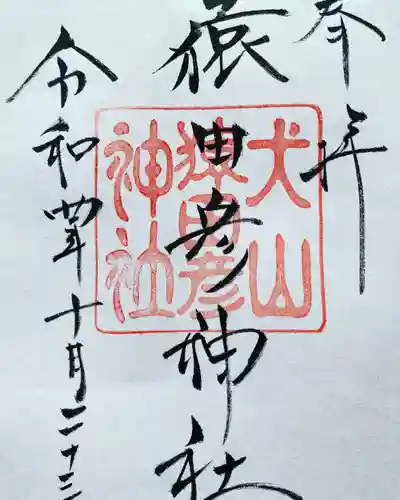 奉拝
猿田彦神社
令和四年十月二十三
犬山
猿田彦
神社